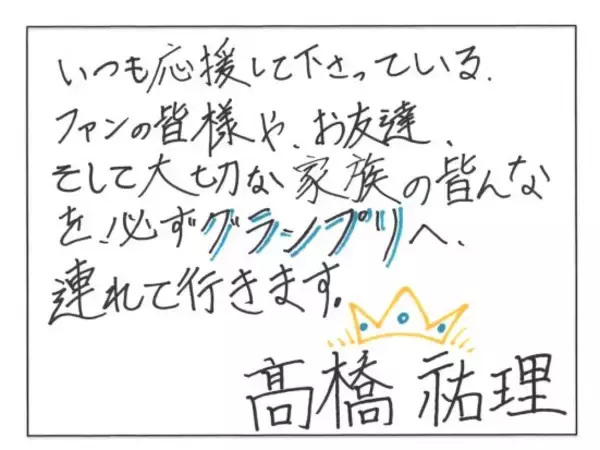 いつも応援して下さっている、
ファンの皆様や、お友達、
そして大切な家族の皆んな
を、必ずグランプリへ、
連れて行きます。
髙橋祐理